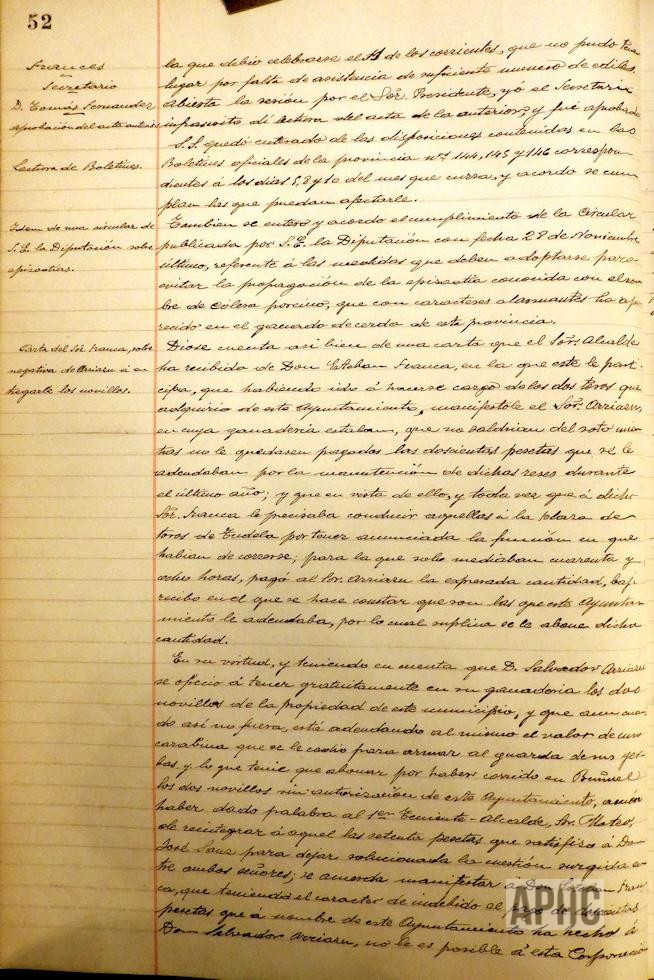 52
Frances
Secretario
D. Tomás Fernandez
aprobación del acta anterior
Lectura de Boletines.
Idem de una circular de
S. E. la Diputación sobre
epizootias.
Carta del Sor. Franca, sobre
negativa de Arriazu á en
tregarle los novillos.
la que debió celebrarse el 11 de los corrientes, que no pudo tener
lugar por falta de asistencia de suficiente numero de ediles.
Abierta la sesión por el Sor. Presidente, yó el Secretario
infrascrito dí lectura del acta de la anterior, y fué aprobada
S.S. quedó enterado de las disposiciones contenidas en los
Boletines oficiales de la provincia nos. 144, 145 y 146 correspon
dientes á los dias 5, 8 y 10 del mes que cursa, y acordó se cum
plan las que puedan afectarle.
Tambien se enteró y acordó el cumplimiento de la Circular
publicada por S. E. la Diputación con fecha 28 de Noviembre
último, referente á las medidas que deben adoptarse para
evitar la propagación de la epizootia conocida con el nom
bre de cólera porcino, que con caracteres alarmantes ha apa
recido en el ganado de cerda de esta provincia.
Diose cuenta asi bien de una carta que el Sor. Alcalde
ha recibido de Don Esteban Franca, en la que este le parti
cipa, que habiendo ido á hacerse cargo de los dos toros que
adquirió de este Ayuntamiento, manifestole el Sor. Arriazu,
en cuya ganadería estaban, que no saldrian del soto mien
tras no le quedasen pagadas las doscientas pesetas que se le
adeudaban por la manutención de dichas reses durante
el último año; y que en vista de ello, y toda vez que á dicho
Sor. Franca le precisaba conducir aquellas á la plaza de
toros de Tudela por tener anunciada la función en que
habian de correrse; para la que solo mediaban cuarenta y
ocho horas, pagó al Sor. Arriazu la expresada cantidad, bajo
recibo en el que se hace constar que son las que este Ayunta
miento le adeudaba, por lo cual suplica se le abone dicha
cantidad.
En su virtud, y teniendo en cuenta que D. Salvador Arriazu
se ofreció á tener gratuitamente en su ganadería los dos
novillos de la propiedad de este municipio, y que aun cuan
do así no fuera, está adeudando al mismo el valor de una
carabina que se le cedió para armar al guarda de sus yer
bas, y lo que tenie que abonar por haber corrido en Buñuel
los dos novillos sin autorización de este Ayuntamiento, amén
haber dado palabra al 1er Teniente-Alcalde, Sr. Mateo,
de reintegrar á aquel las setenta pesetas que satisfizo á Don
José Sanz para dejar solucionada la cuestión surgida en
tre ambos señores; se acuerda manifestar á Don Esteban Fran
ca, que teniendo el caracter de indebido el pago de doscientas
pesetas que á nombre de este Ayuntamiento ha hecho á
Don Salvador Arriazu, no le es posible á esta Corporación
APHC